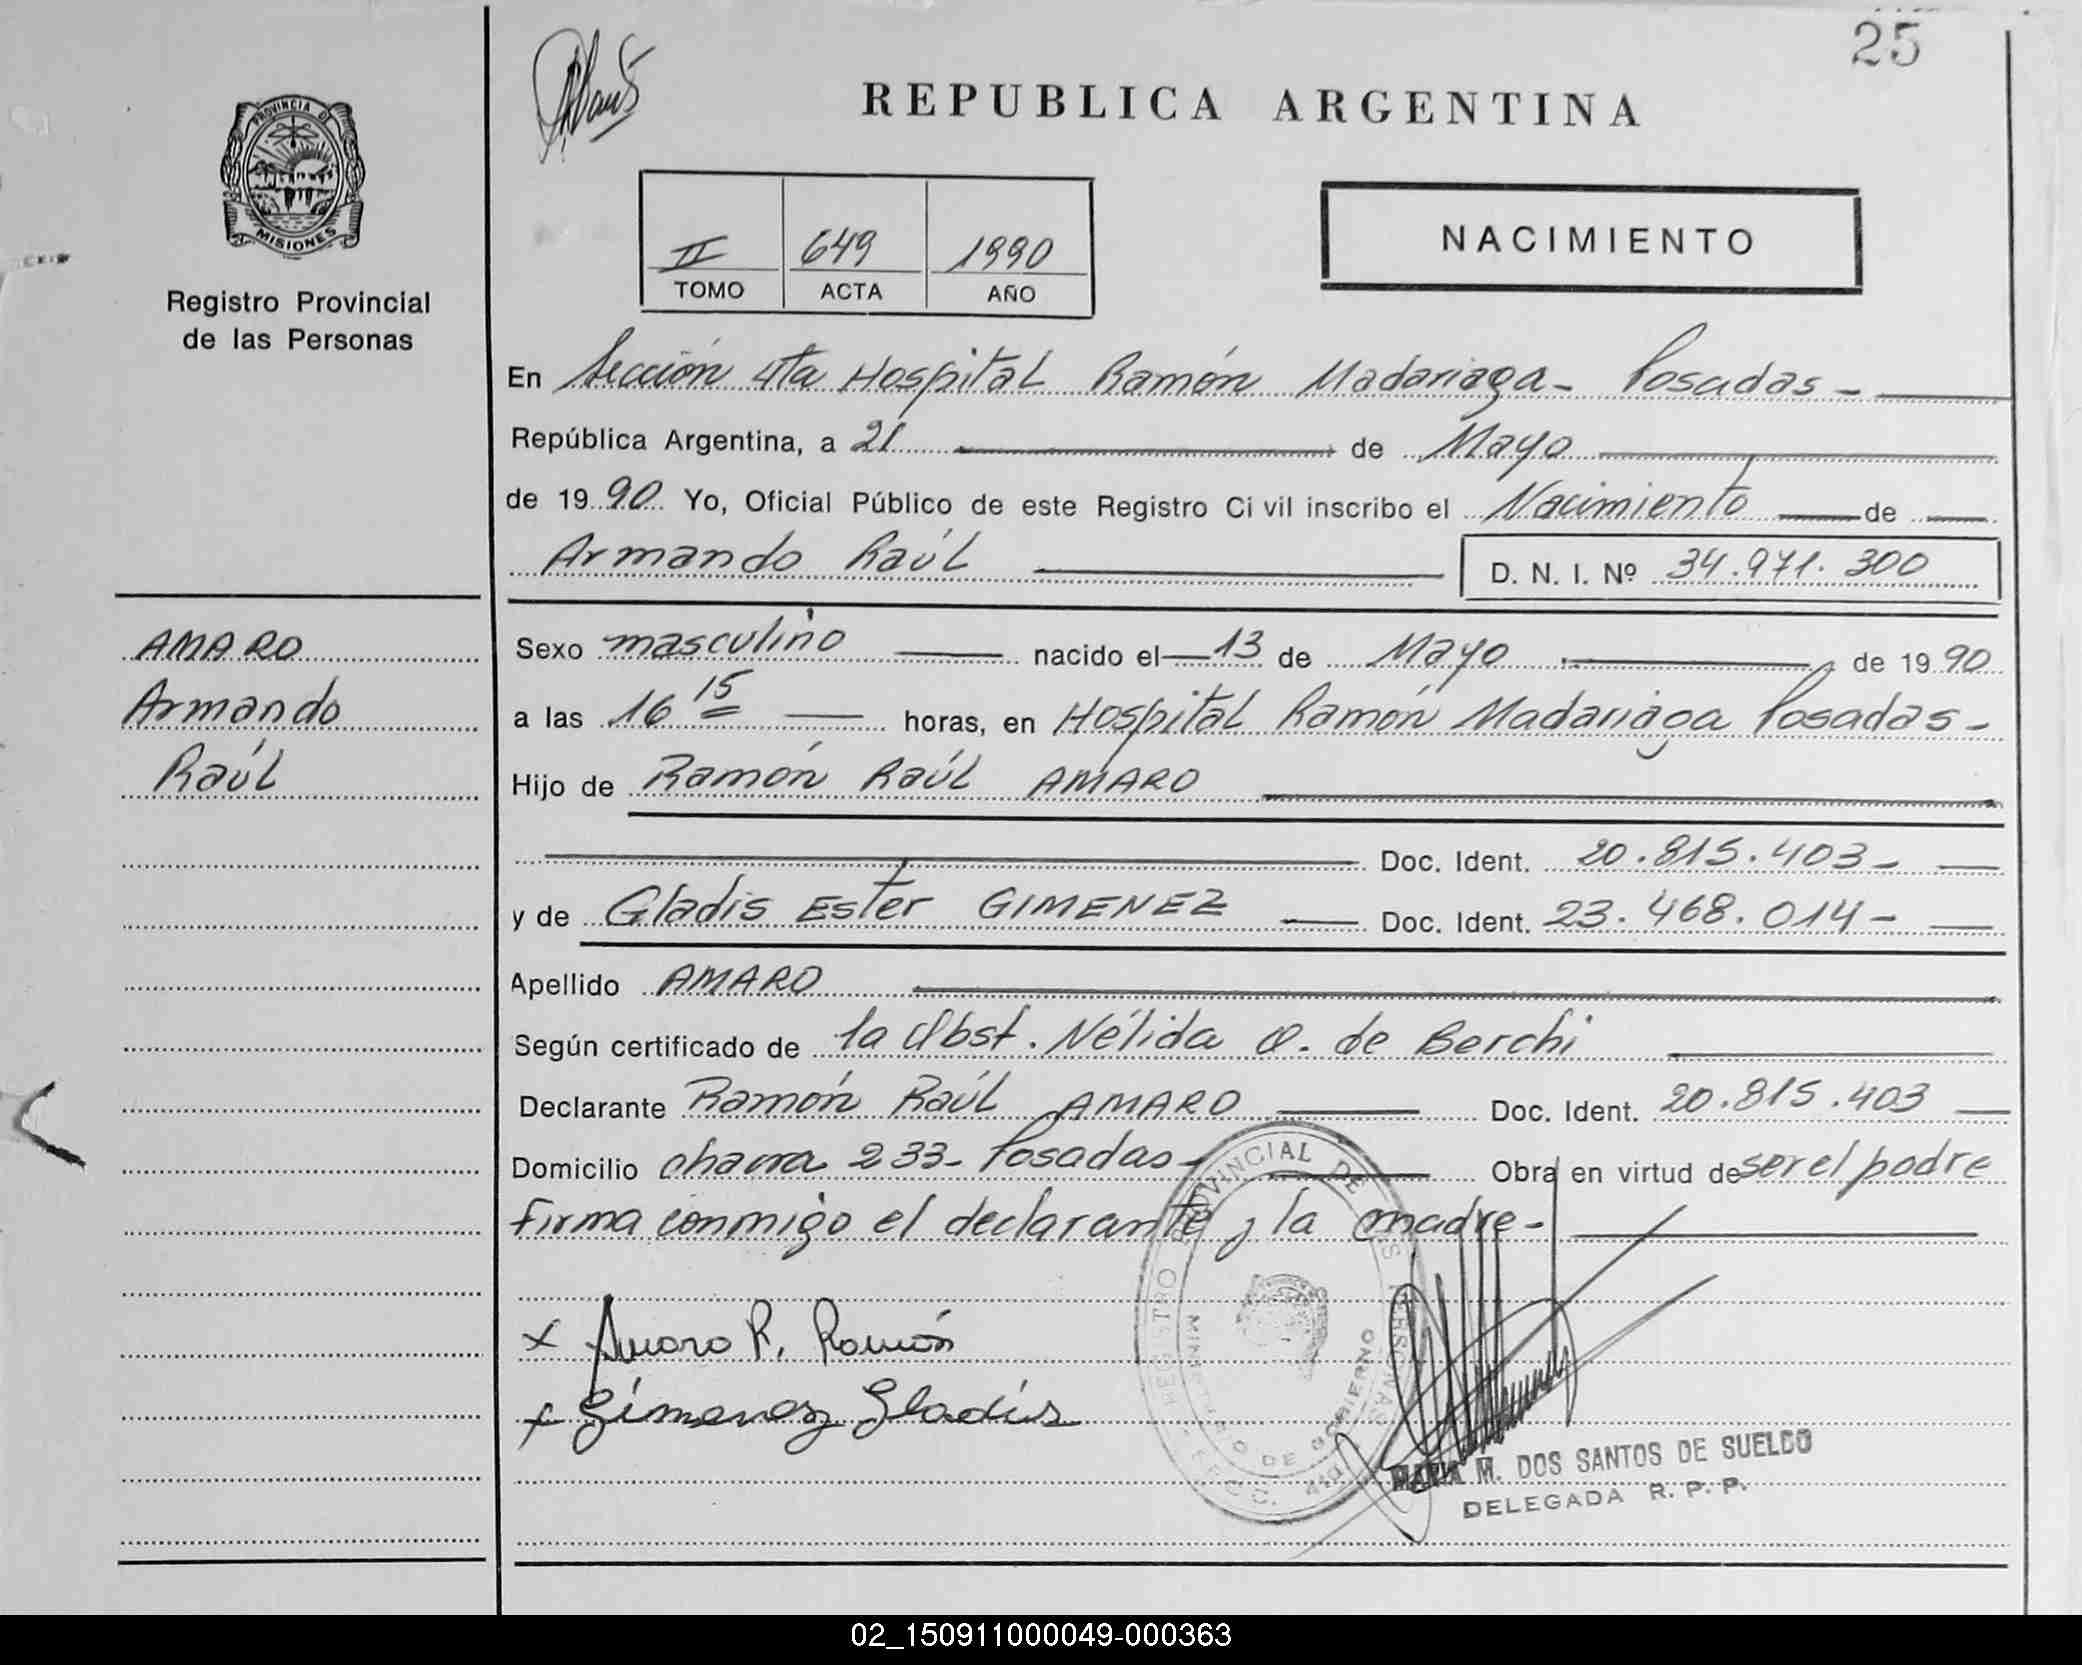 25
REPUBLICA ARGENTINA
PROVINCIA DE
MISIONES
Registro Provincial
de las Personas
II 649 1990
TOMO ACTA AÑO
NACIMIENTO
En Sección 4ta Hospital Ramón Madariaga - Posadas -
República Argentina, a 21 de Mayo
de 1990 Yo, Oficial Público de este Registro Ci vil inscribo el Nacimiento de
Armando Raúl D. N. I. Nº 34.971.300
AMARO
Armando
Raúl
Sexo masculino nacido el 13 de Mayo de 1990
a las 16 15 horas, en Hospital Ramón Madariaga Posadas -
Hijo de Ramón Raúl AMARO
Doc. Ident. 20.815.403 -
y de Gladis Ester GIMENEZ Doc. Ident. 23.468.014 -
Apellido AMARO
Según certificado de la Obst. Nélida O. de Berchi
Declarante Ramón Raúl AMARO Doc. Ident. 20.815.403
Domicilio chacra 233 - Posadas - Obra en virtud de ser el padre
Firma conmigo el declarante y la madre -
x Amaro R. Ramón
x Gimenez Gladis
REGISTRO PROVINCIAL DE LAS PERSONAS
MINISTERIO DE GOBIERNO
MARIA M. DOS SANTOS DE SUELDO
DELEGADA R. P. P.
02_150911000049-000363